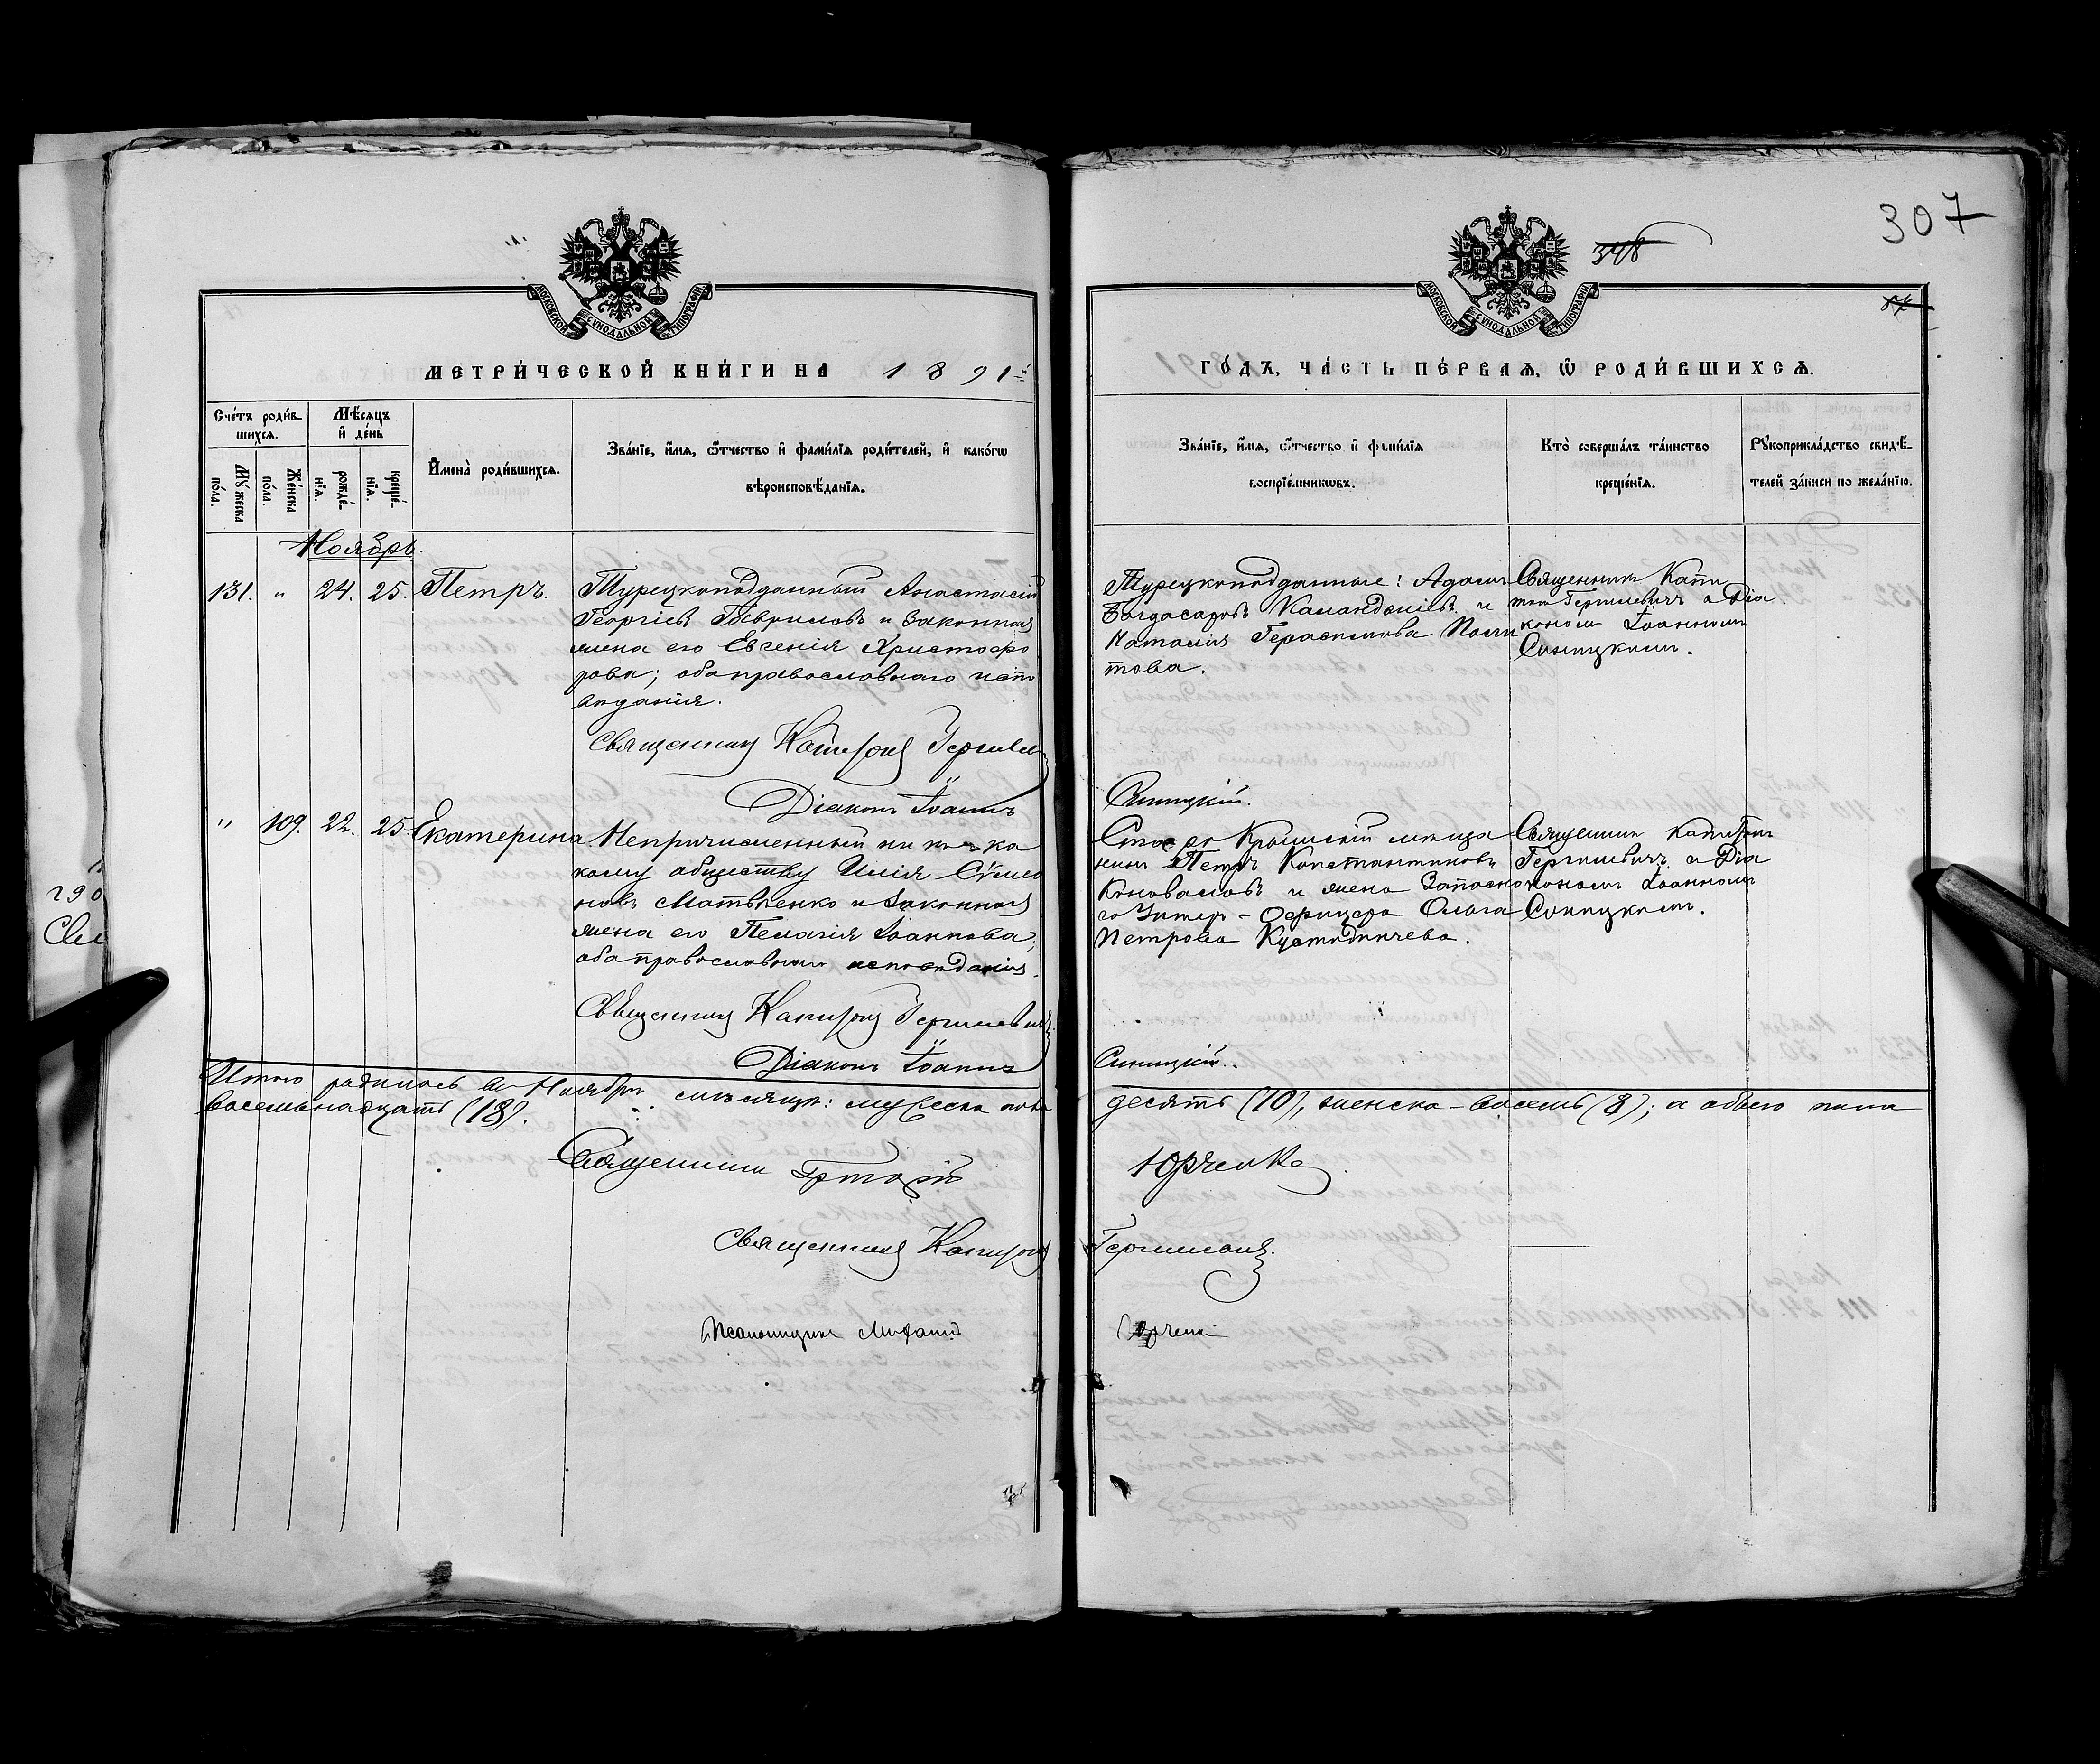 307
348
МОСКОВСКОЙ СѴНОДАЛЬНОЙ ТИПОГРАФІИ
МОСКОВСКОЙ СѴНОДАЛЬНОЙ ТИПОГРАФІИ
МЕТРИ́ЧЕСКОЙ КНИ́ГИ НА 1891й
ГО́ДЪ, ЧА́СТЬ ПЕ́РВАѦ, Ѡ РОДИ́ВШИХСѦ.
Сче́тъ роди́в-
шихсѧ.
Мѣ́сѧцъ
и де́нь
Му́жеска по́ла.
Же́нска по́ла.
рожде́-
нїѧ.
креще́-
нїѧ.
Имена̀ роди́вшихсѧ.
Зва́нїе, и́мѧ, ѻ҆́тчество и фами́лїѧ роди́телей, и како́гѡ
вѣроисповѣ́данїѧ.
Зва́нїе, и́мѧ, ѻ҆́тчество и фами́лїѧ
воспрїе́мникѡвъ.
Кто̀ соверша́лъ та́инство
креще́нїѧ.
Рꙋкоприкла́дство свидѣ́-
телей за́писи по жела́нїю.
Ноябрь.
131. " 24. 25. Петръ.
Турецкоподданный Анастасій
Георгіевъ Гавриловъ и законная
жена его Евгенія Христофо
рова; оба православнаго испо
вѣданія.
Священникъ Капитонъ Гергилев
Діаконъ Іоаннъ
Турецкоподданные: Адамъ
Багдасаровъ и
Наталія Герасимова
това.
Синицкій.
Священникъ Капи
тонъ Гергилевичъ и Діа
кономъ Іоанномъ
Синицкимъ.
" 109. 22. 25. Екатерина
Непричисленный ни къ ка
кому обществу Илія Сѵмео
новъ Матвѣенко и законная
жена его Пелагія Іоаннова;
оба православнаго исповѣданія.
Священникъ Капитонъ Гергилевичъ
Діаконъ Іоаннъ
Старо Крымскій мѣща
нинъ Петръ Константиновъ
Коноваловъ и жена Запасно
го Унтеръ-Офицера Ольга
Петрова
Синицкій.
Священникъ Капитонъ
Гергилевичъ и Діа
кономъ Іоанномъ
Синицкимъ.
Итого родилось въ Ноябрѣ мѣсяцѣ: мужеска пола десять (10), женска - восемь (8); а обоего пола
восемьнадцать (18).
Священникъ Григорій Юрченко
Священникъ Капитонъ Гергилевичъ.
Псаломщикъ Михаилъ